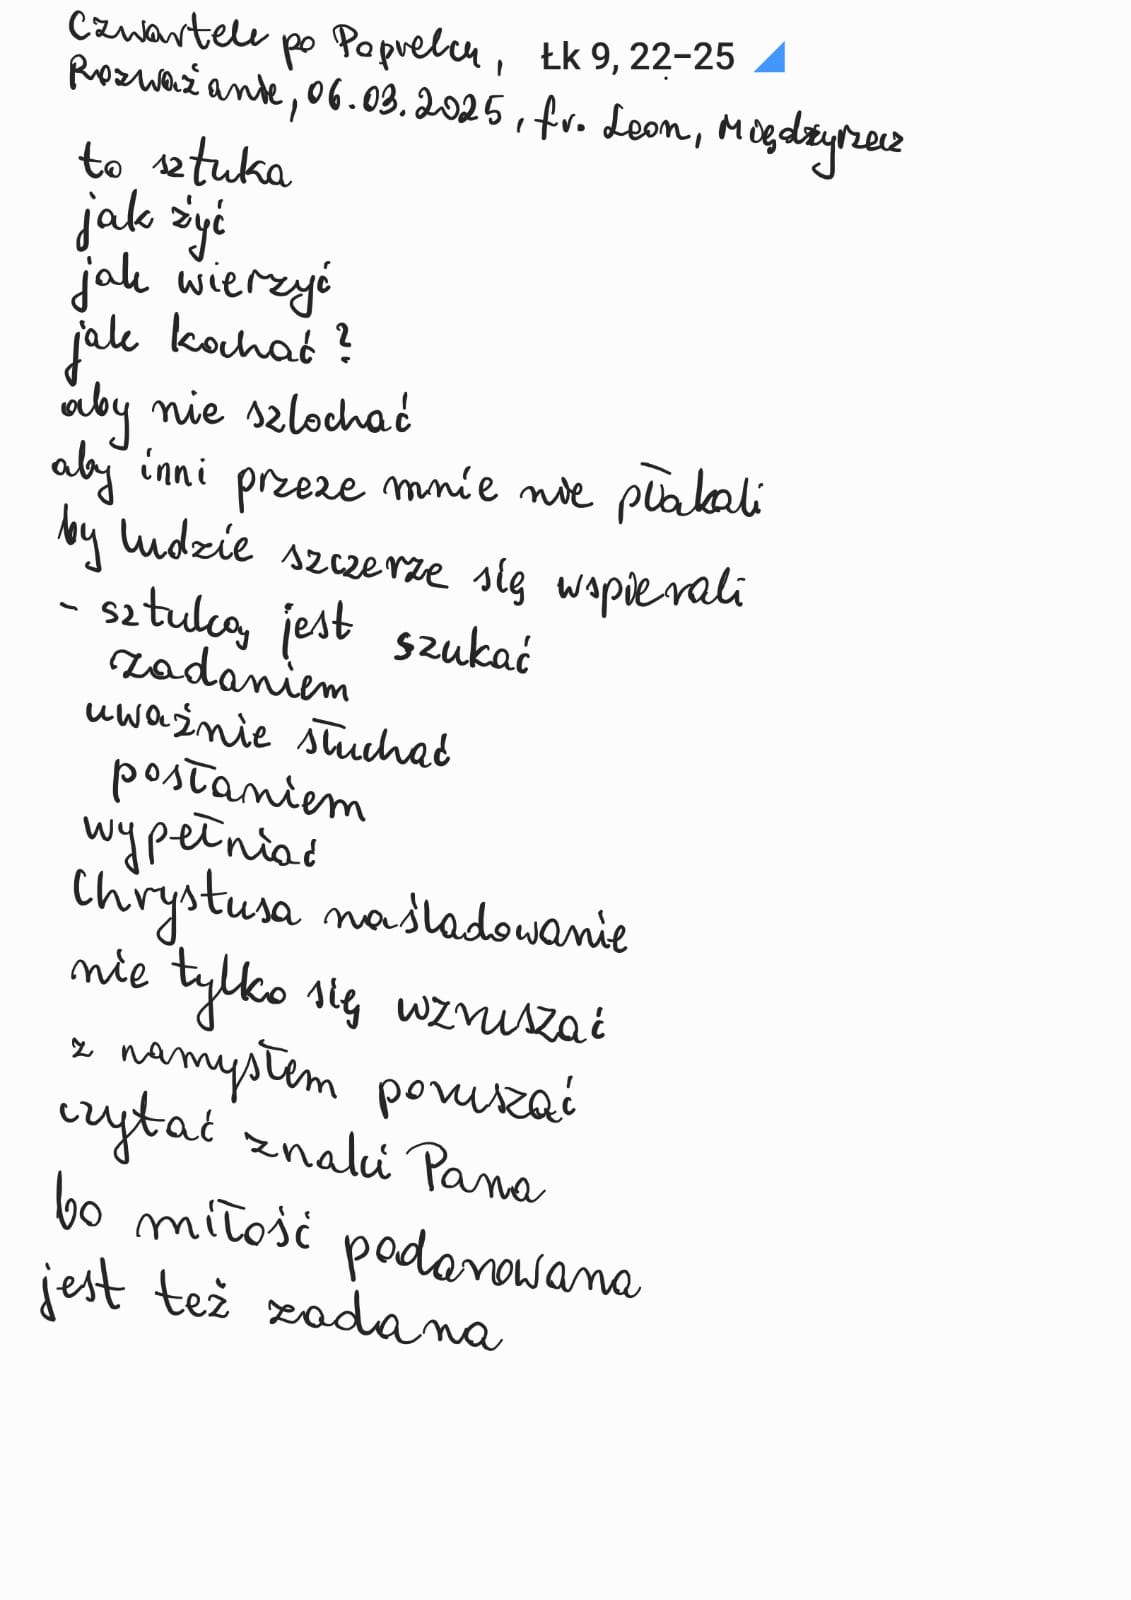 Czwartek po Popielcu, Łk 9, 22–25
Rozważanie, 06.03.2025, fr. Leon, Międzyrzecz
to sztuka
jak żyć
jak wierzyć
jak kochać?
aby nie szlochać
aby inni przeze mnie nie płakali
by ludzie szczerze się wspierali
- sztuką jest szukać
zadaniem
uważnie słuchać
posłaniem
wypełniać
Chrystusa naśladowanie
nie tylko się wzruszać
z namysłem poruszać
czytać znaki Pana
bo miłość podarowana
jest też zadana